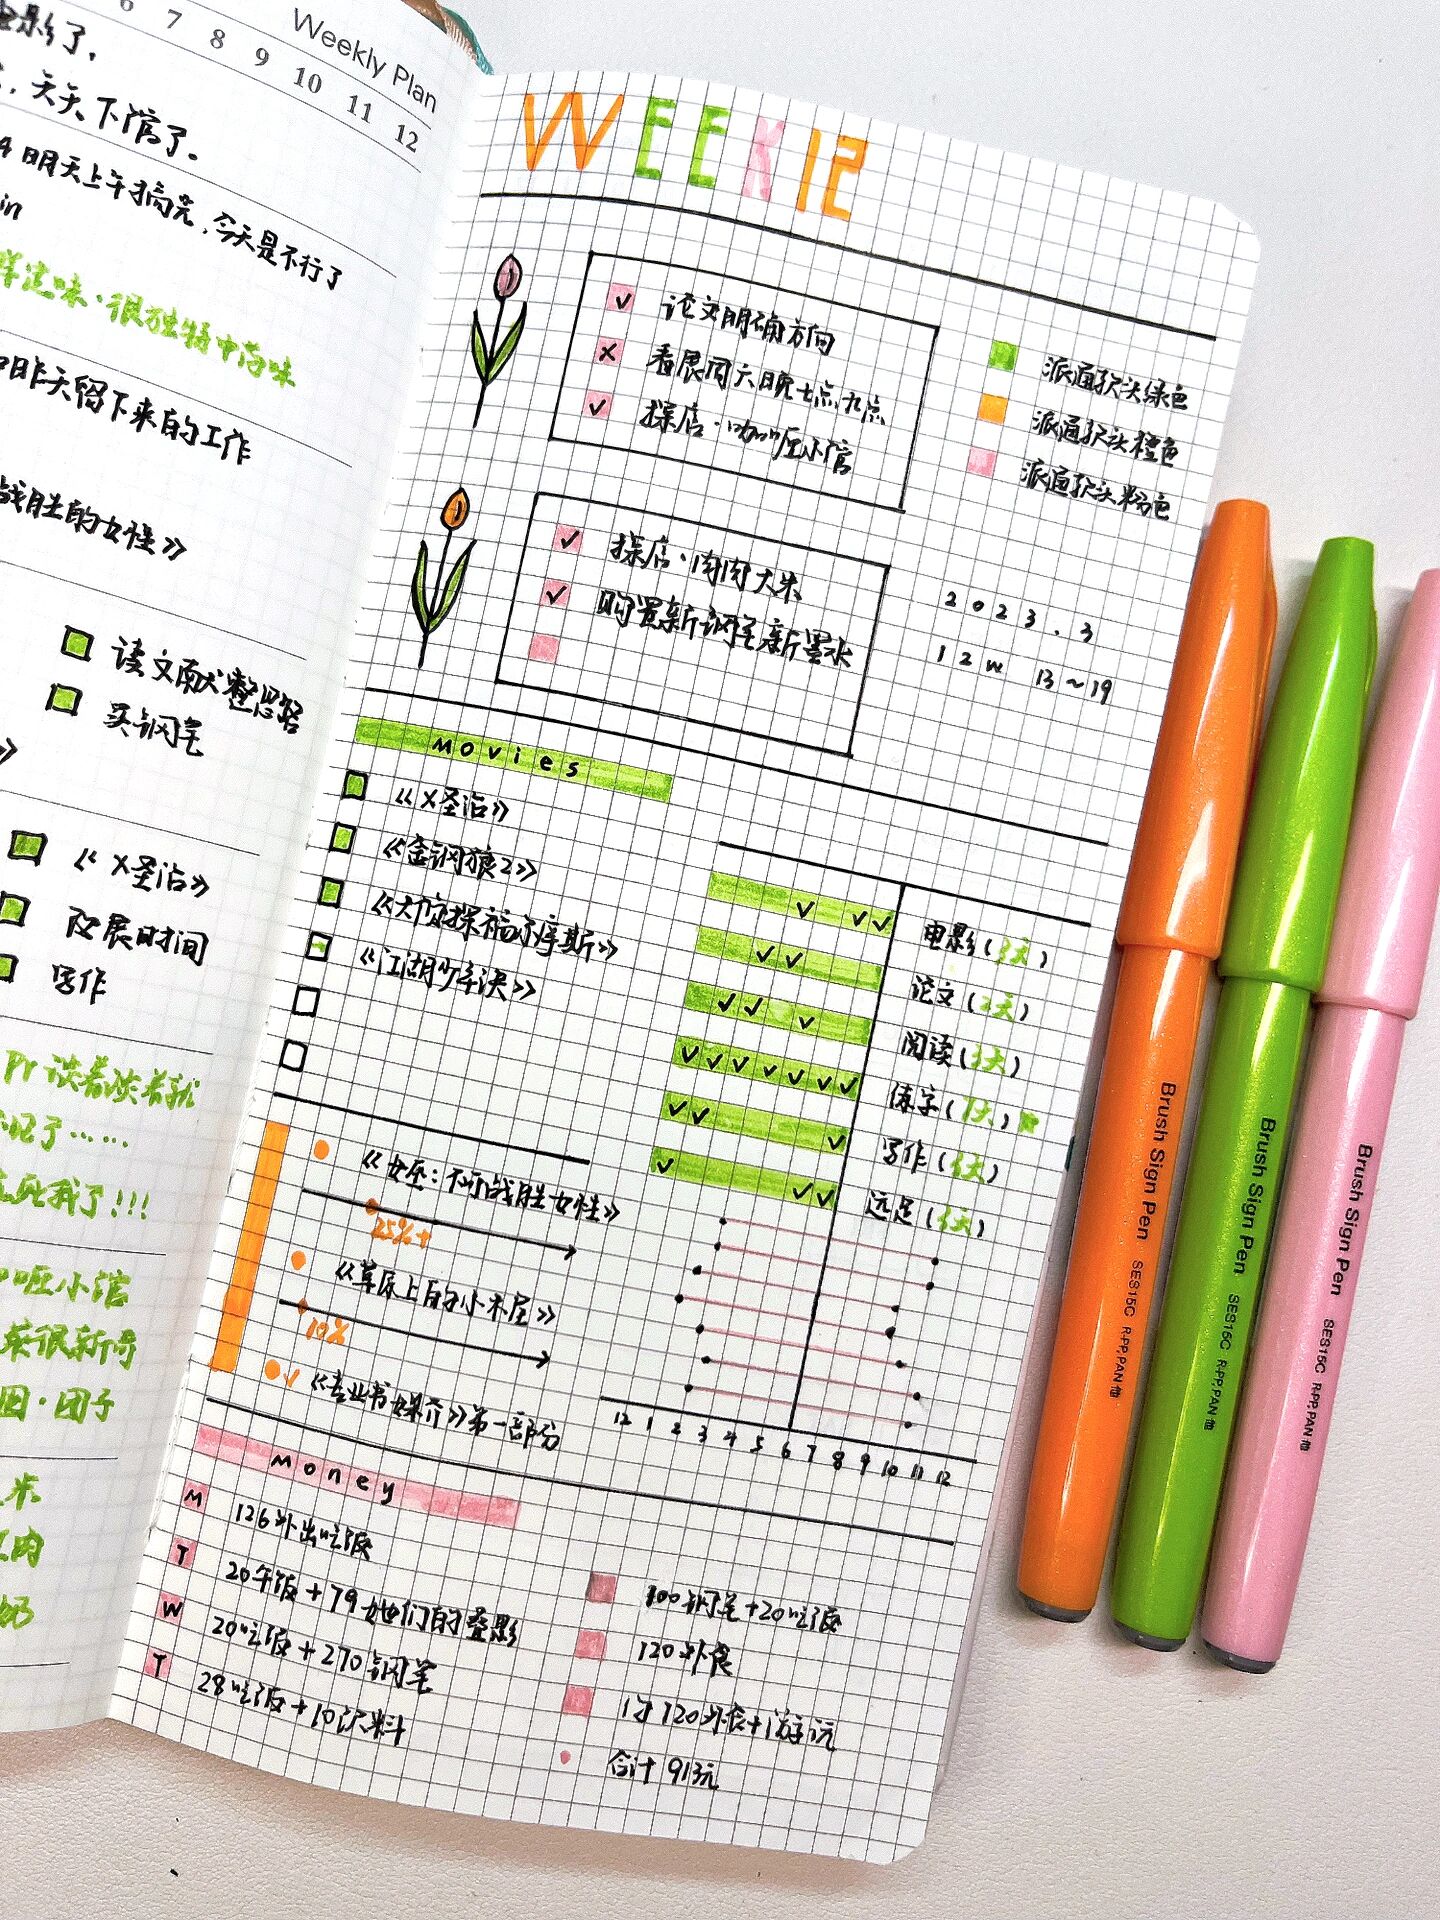 影了.
天天下馆了.
明天上午搞完,今天是不行了
in
味·很独特中药味
昨天留下来的工作
战胜的女性》
读文献整思路
买钢笔
《X圣治》
改展时间
写作
Pr 谈着谈着就
忘记了……
死我了!!!
咖喱小馆
菜很新奇
团子
米
肉
奶
Weekly Plan
6 7 8 9 10 11 12
WEEK 12
✓ 论文明确方向
× 看展周六晚七点.九点
✓ 探店·咖喱小馆
派通软头绿色
派通软头橙色
派通软头粉色
✓ 探店·肉肉大米
✓ 购置新钢笔新墨水
2023.3
12w 13~19
movies
《X圣治》
《金钢狼2》
《大侦探福尔摩斯》
《江湖少年诀》
电影(3天)
论文(2天)
阅读(3天)
练字(7天)
写作(3天)
远足(3天)
《女巫:不可战胜女性》
25%+
《草原上的小木屋》
10%
✓《专业书媒介》第一部分
12 1 2 3 4 5 6 7 8 9 10 11 12
money
M 126外出吃饭
T 20午饭+79她们的叠影
W 20吃饭+270钢笔
T 28吃饭+10饮料
100钢笔+20吃饭
120外食
120外食+游玩
合计 913元
Brush Sign Pen SES15C R-PP,PAN 他
Brush Sign Pen SES15C R-PP,PAN 他
Brush Sign Pen SES15C R-PP,PAN 他